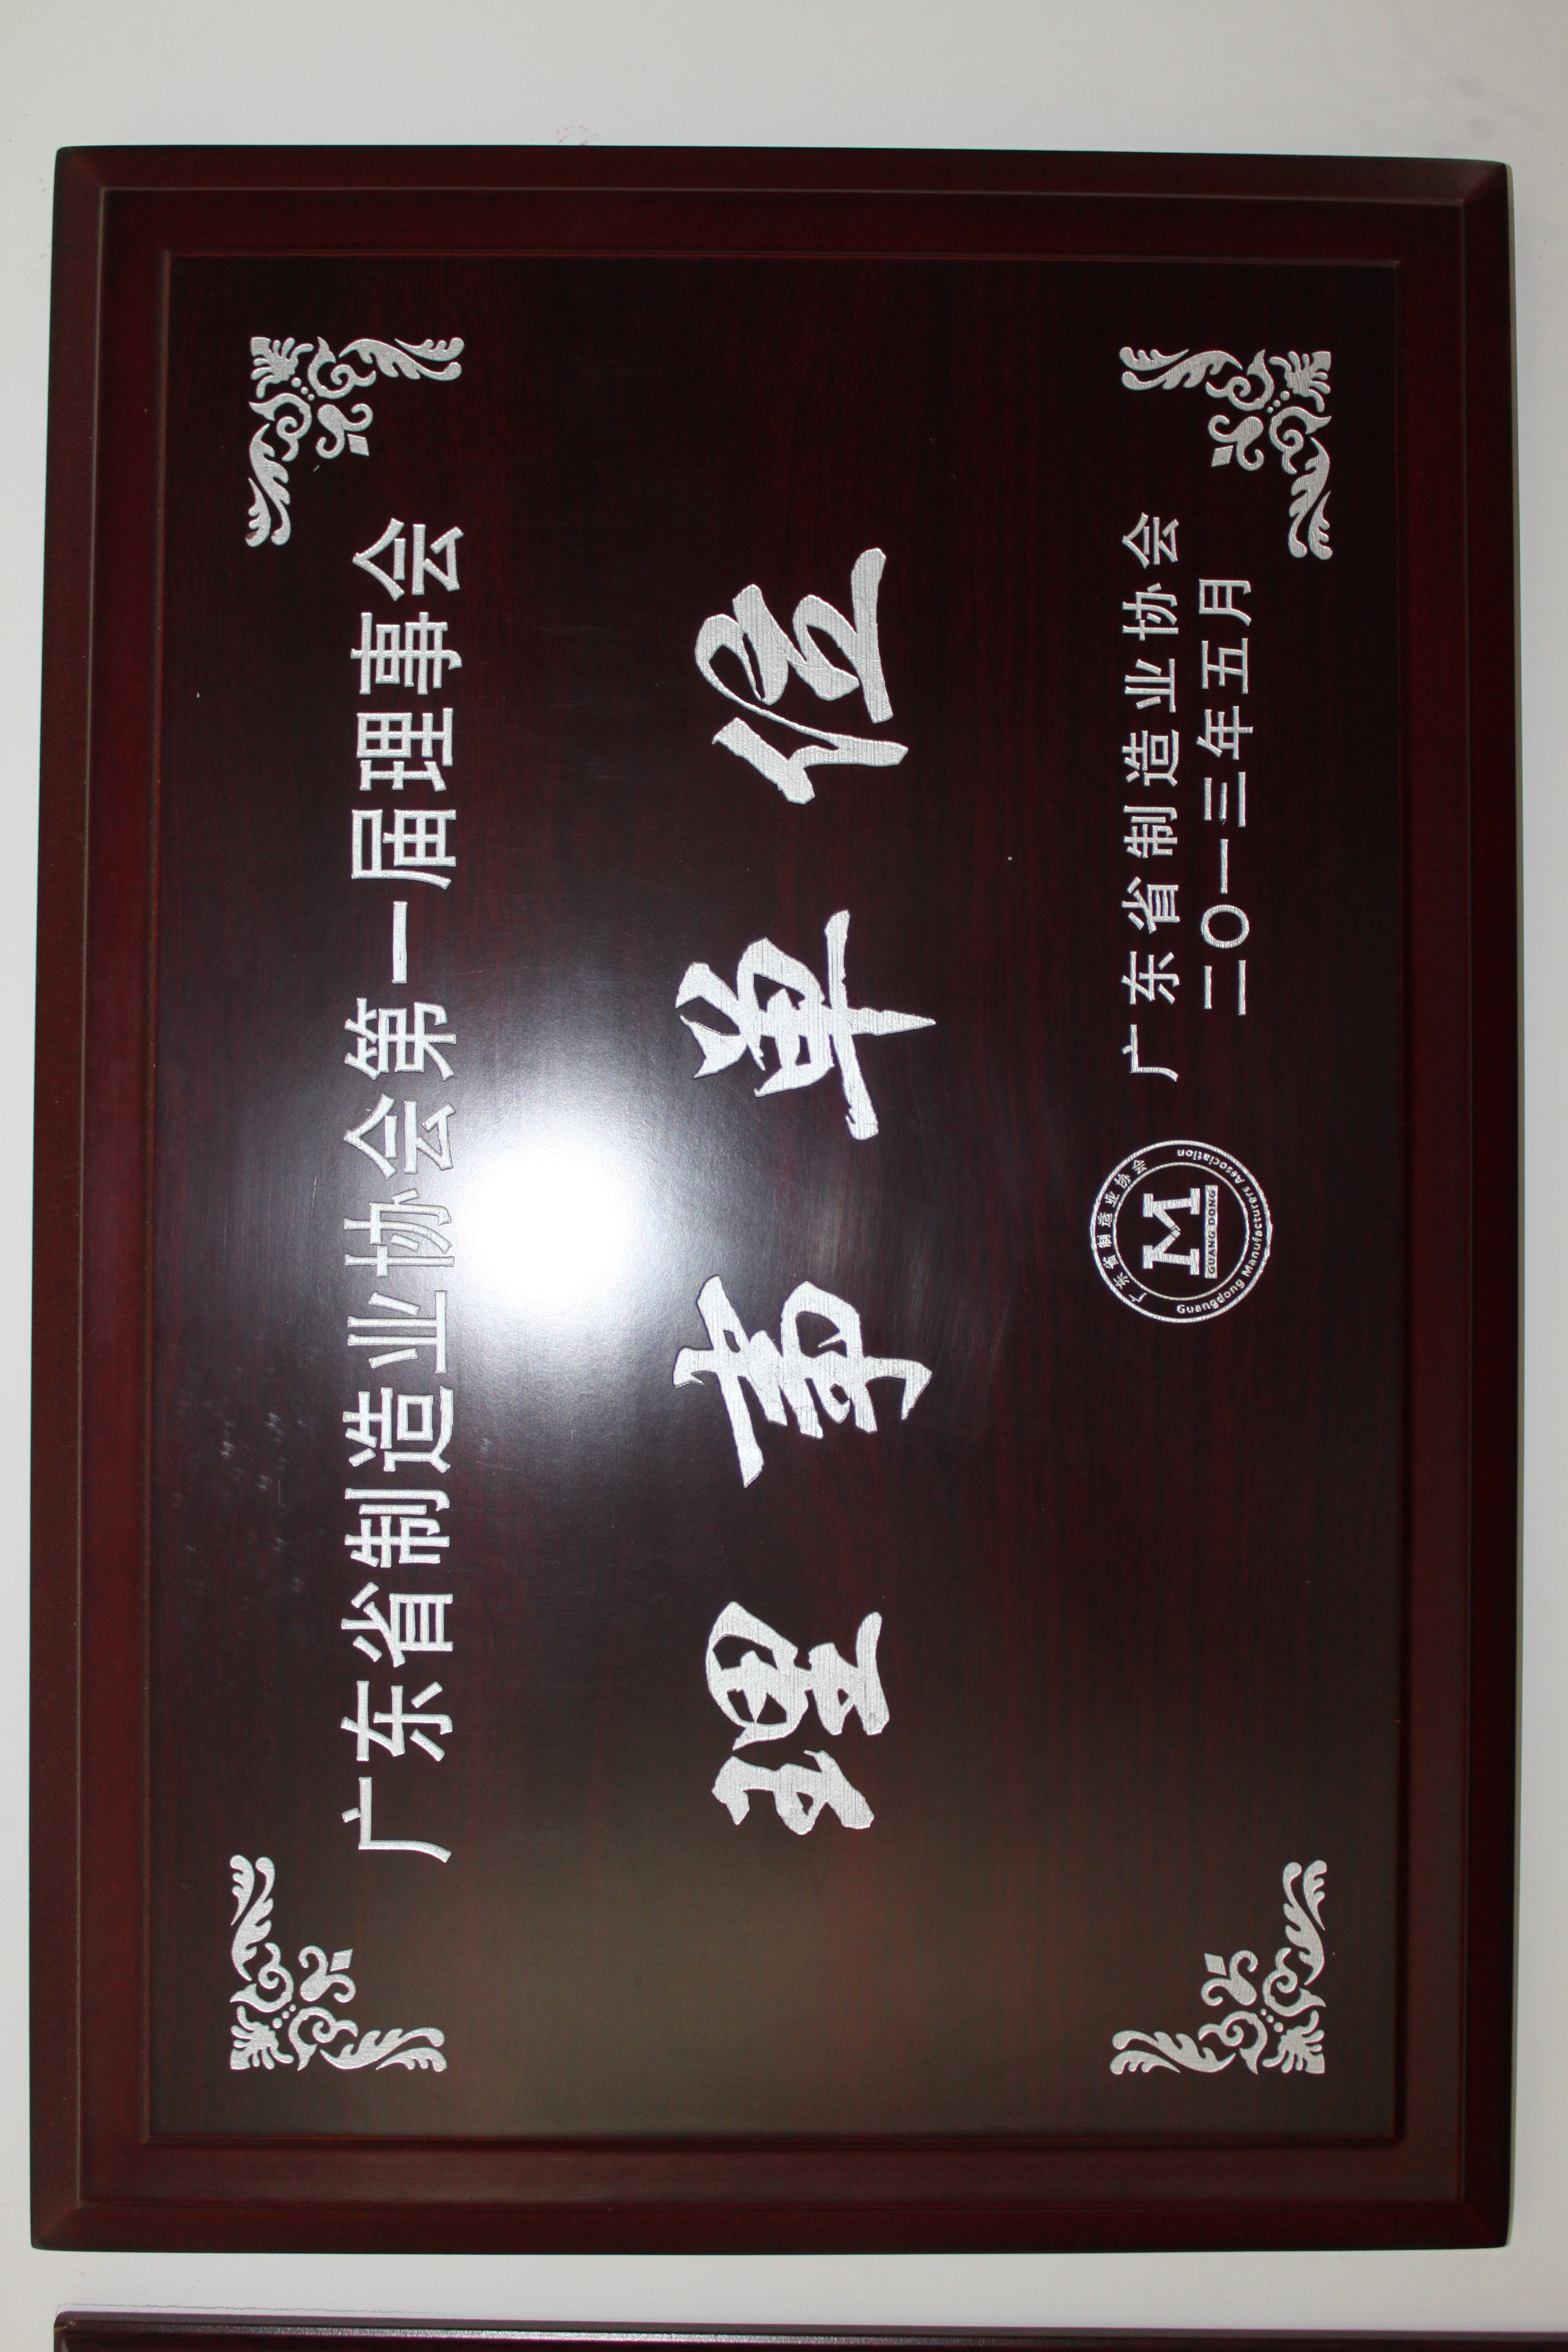 广东省制造业协会第一届理事会
理事單位
广东省制造业协会
二〇一三年五月
广东省制造业协会
M
GUANG DONG
Guangdong Manufacturers Association